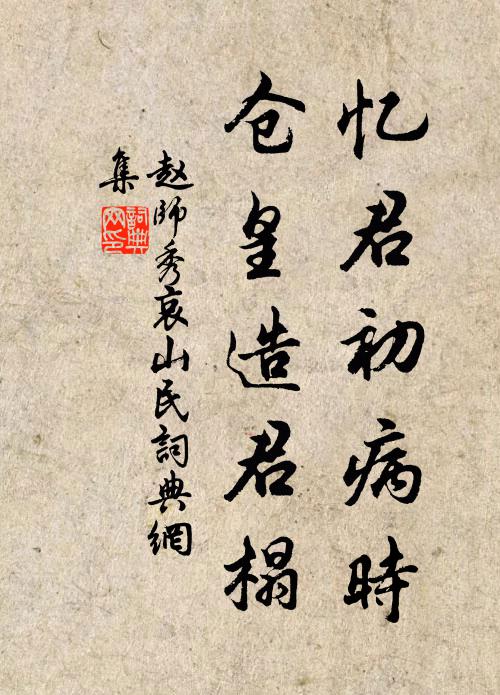 忆君初病時
仓皇造君榻
赵師秀哀山民詞典網
集
詞典网印